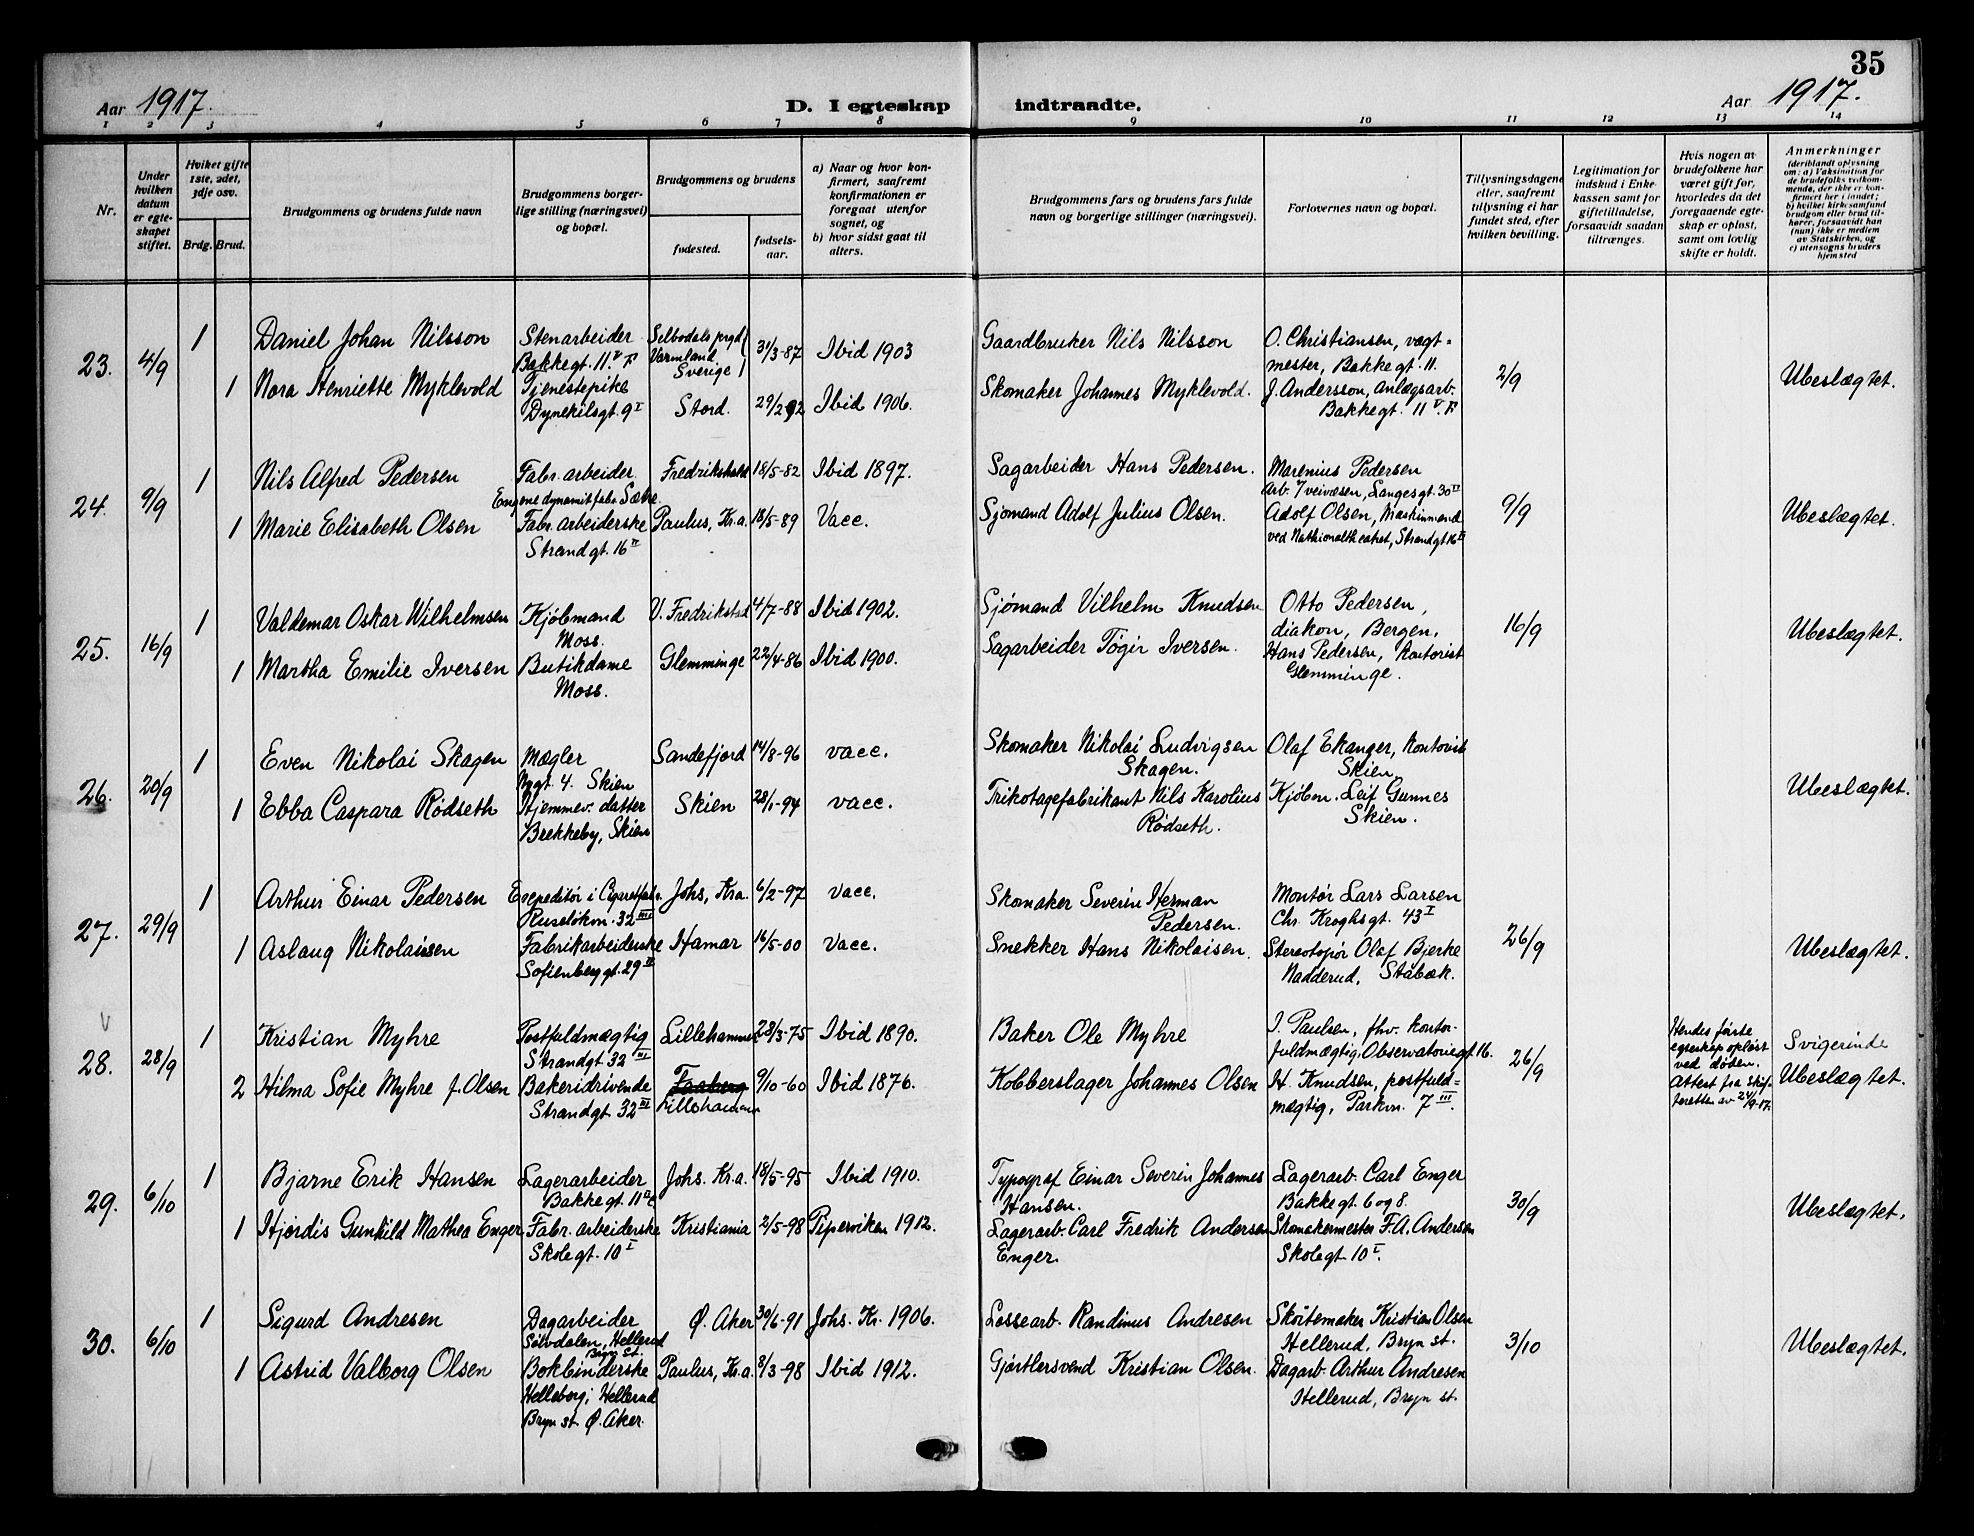 35
Aar 1917.
D. I egteskap indtraadte.
Aar 1917.
1 2 3 4 5 6 7 8 9 10 11 12 13 14
Nr.
Under hvilken datum er egteskapet stiftet.
Hviket gifte 1ste, 2det, 3dje osv.
Brdg. Brud.
Brudgommens og brudens fulde navn
Brudgommens borgerlige stilling (næringsvei) og bopæl.
Brudgommens og brudens
fødested.
fødselsaar.
a) Naar og hvor konfirmert, saafremt konfirmationen er foregaat utenfor sognet, og
b) hvor sidst gaat til alters.
Brudgommens fars og brudens fars fulde navn og borgerlige stillinger (næringsvei).
Forlovernes navn og bopæl.
Tillysningsdagene eller, saafremt tillysning ei har fundet sted, efter hvilken bevilling.
Legitimation for indskud i Enkekassen samt for giftetilladelse, forsaavidt saadan tiltrænges.
Hvis nogen av brudefolkene har været gift før, hvorledes da det foregaaende egteskap er opløst, samt om lovlig skifte er holdt.
Anmerkninger (deriblandt oplysning om: a) Vaksination for de brudefolks vedkommende, der ikke er konfirmert her i landet; b) hvilket kirkesamfund brudgom eller brud tilhører, forsaavidt han (hun) ikke er medlem av Statskirken, og c) utensogns bruders hjemsted
23. 4/9
1 Daniel Johan Nilsson
Stenarbeider
Bakkegt. 11. V F
Silbodals prgd
Varmland
Sverige
31/3-87
Ibid 1903
Gaardbruker Nils Nilsson
O. Christiansen, vagtmester, Bakkegt. 11.
1 Nora Henriette Myklevold
Tjenestepike
Dynekilsgt. 9 I
Stord.
29/2 92
Ibid 1906.
Skomaker Johannes Myklevold.
J. Andersson, anlægsarb.
Bakkegt. 11 V. F
2/9
Ubeslægtet.
24. 9/9
1 Nils Alfred Pedersen
Fabr. arbeider
Engene dynamitfabr. Sætre.
Fredrikshald
18/5-82
Ibid 1897.
Sagarbeider Hans Pedersen.
Marenius Pedersen
Arb. v/ veivæsen, Langesgt. 30 II
1 Marie Elisabeth Olsen
Fabr. arbeiderske
Strandgt. 16 II
Paulus, Kr.a.
18/5-89
Vacc.
Sjømand Adolf Julius Olsen.
Adolf Olsen, Maskinmand
ved Nationaltheatret, Strandgt 16 II
9/9
Ubeslægtet.
25. 16/9
1 Valdemar Oskar Wilhelmsen
Kjøbmand
Moss.
V. Fredrikstad
4/7-88
Ibid 1902.
Sjømand Vilhelm Knudsen
Otto Pedersen,
diakon, Bergen.
1 Martha Emilie Iversen
Butikdame
Moss.
Glemminge
22/4-86
Ibid 1900.
Sagarbeider Tøgir Iversen.
Hans Pedersen, kontorist
Glemminge.
16/9
Ubeslægtet.
26. 20/9
1 Even Nikolai Skagen
Mægler
Nygt 4. Skien
Sandefjord
14/8-96
vacc.
Skomaker Nikolai Ludvigsen
Skagen.
Olaf Ekanger, kontorist
Skien
1 Ebba Caspara Rödseth
Hjemmev. datter
Brekkeby, Skien
Skien
28/1-94
vacc.
Trikotagefabrikant Nils Karolius
Rödseth.
Kjøbm. Leif Gunnes
Skien.
Ubeslægtet.
27. 29/9
1 Arthur Einar Pedersen
Expeditör i Cigaretfabr.
Ruseløkvn. 32 III
Johs, Kr.a.
6/2-97
vacc.
Skomaker Severin Herman
Pedersen.
Montør Lars Larsen
Chr. Kroghsgt. 43 I
1 Aslaug Nikolaisen
Fabrikarbeiderske
Sofienberggt. 29 II
Hamar
16/5-00
Vacc.
Snekker Hans Nikolaisen.
Stereotypør Olaf Bjerke
Nadderud, Stabæk.
26/9
Ubeslægtet.
28. 28/9
1 Kristian Myhre
Postfuldmægtig
Strandgt 32 III
Lillehammer
28/3-75
Ibid 1890.
Baker Ole Myhre
J. Paulsen, fhv. kontorfuldmægtig, Observatoriegt 16.
2 Hilma Sofie Myhre f. Olsen
Bakeridrivende
Strandgt. 32 III
Faaberg
Lillehammer
9/10-60
Ibid 1876.
Kobberslager Johannes Olsen
H. Knudsen, postfuldmægtig, Parkvn. 7 III.
26/9
Hendes første
egteskap opløst
ved døden.
Attest fra skifteretten av 24/9-17.
Svigerinde
Ubeslægtet.
29. 6/10
1 Bjarne Erik Hansen
Lagerarbeider
Bakkegt. 11
Johs. Kr.a.
18/5-95
Ibid 1910.
Typograf Einar Severin Johannes
Hansen.
Lagerarb. Carl Enger
Bakkegt. 6 og 8.
1 Hjørdis Gunhild Mathea Enger
Fabr. arbeiderske
Skolegt. 10 I
Kristiania
2/5-98
Pipervikten 1912.
Lagerarb. Carl Fredrik Andersen
Enger.
Skomakermester F.A. Andersen
Skolegt 10 I.
30/9
Ubeslægtet.
30. 6/10
1 Sigurd Andresen
Dagarbeider
Sølvdalen, Hellerud
Bryn St.
Ø. Aker
30/6-91
Johs. Kr. 1906.
Lossearb. Randinus Andresen
Skøitemaker Kristian Olsen
Hellerud, Bryn st.
1 Astrid Valborg Olsen
Bokbinderske
Helleborg, Hellerud
Bryn st. Ø. Aker.
Paulus, Kr.a.
8/3-98
Ibid 1912.
Gjørtlersvend Kristian Olsen.
Dagarb. Arthur Andresen
Hellerud, Bryn st.
3/10
Ubeslægtet.